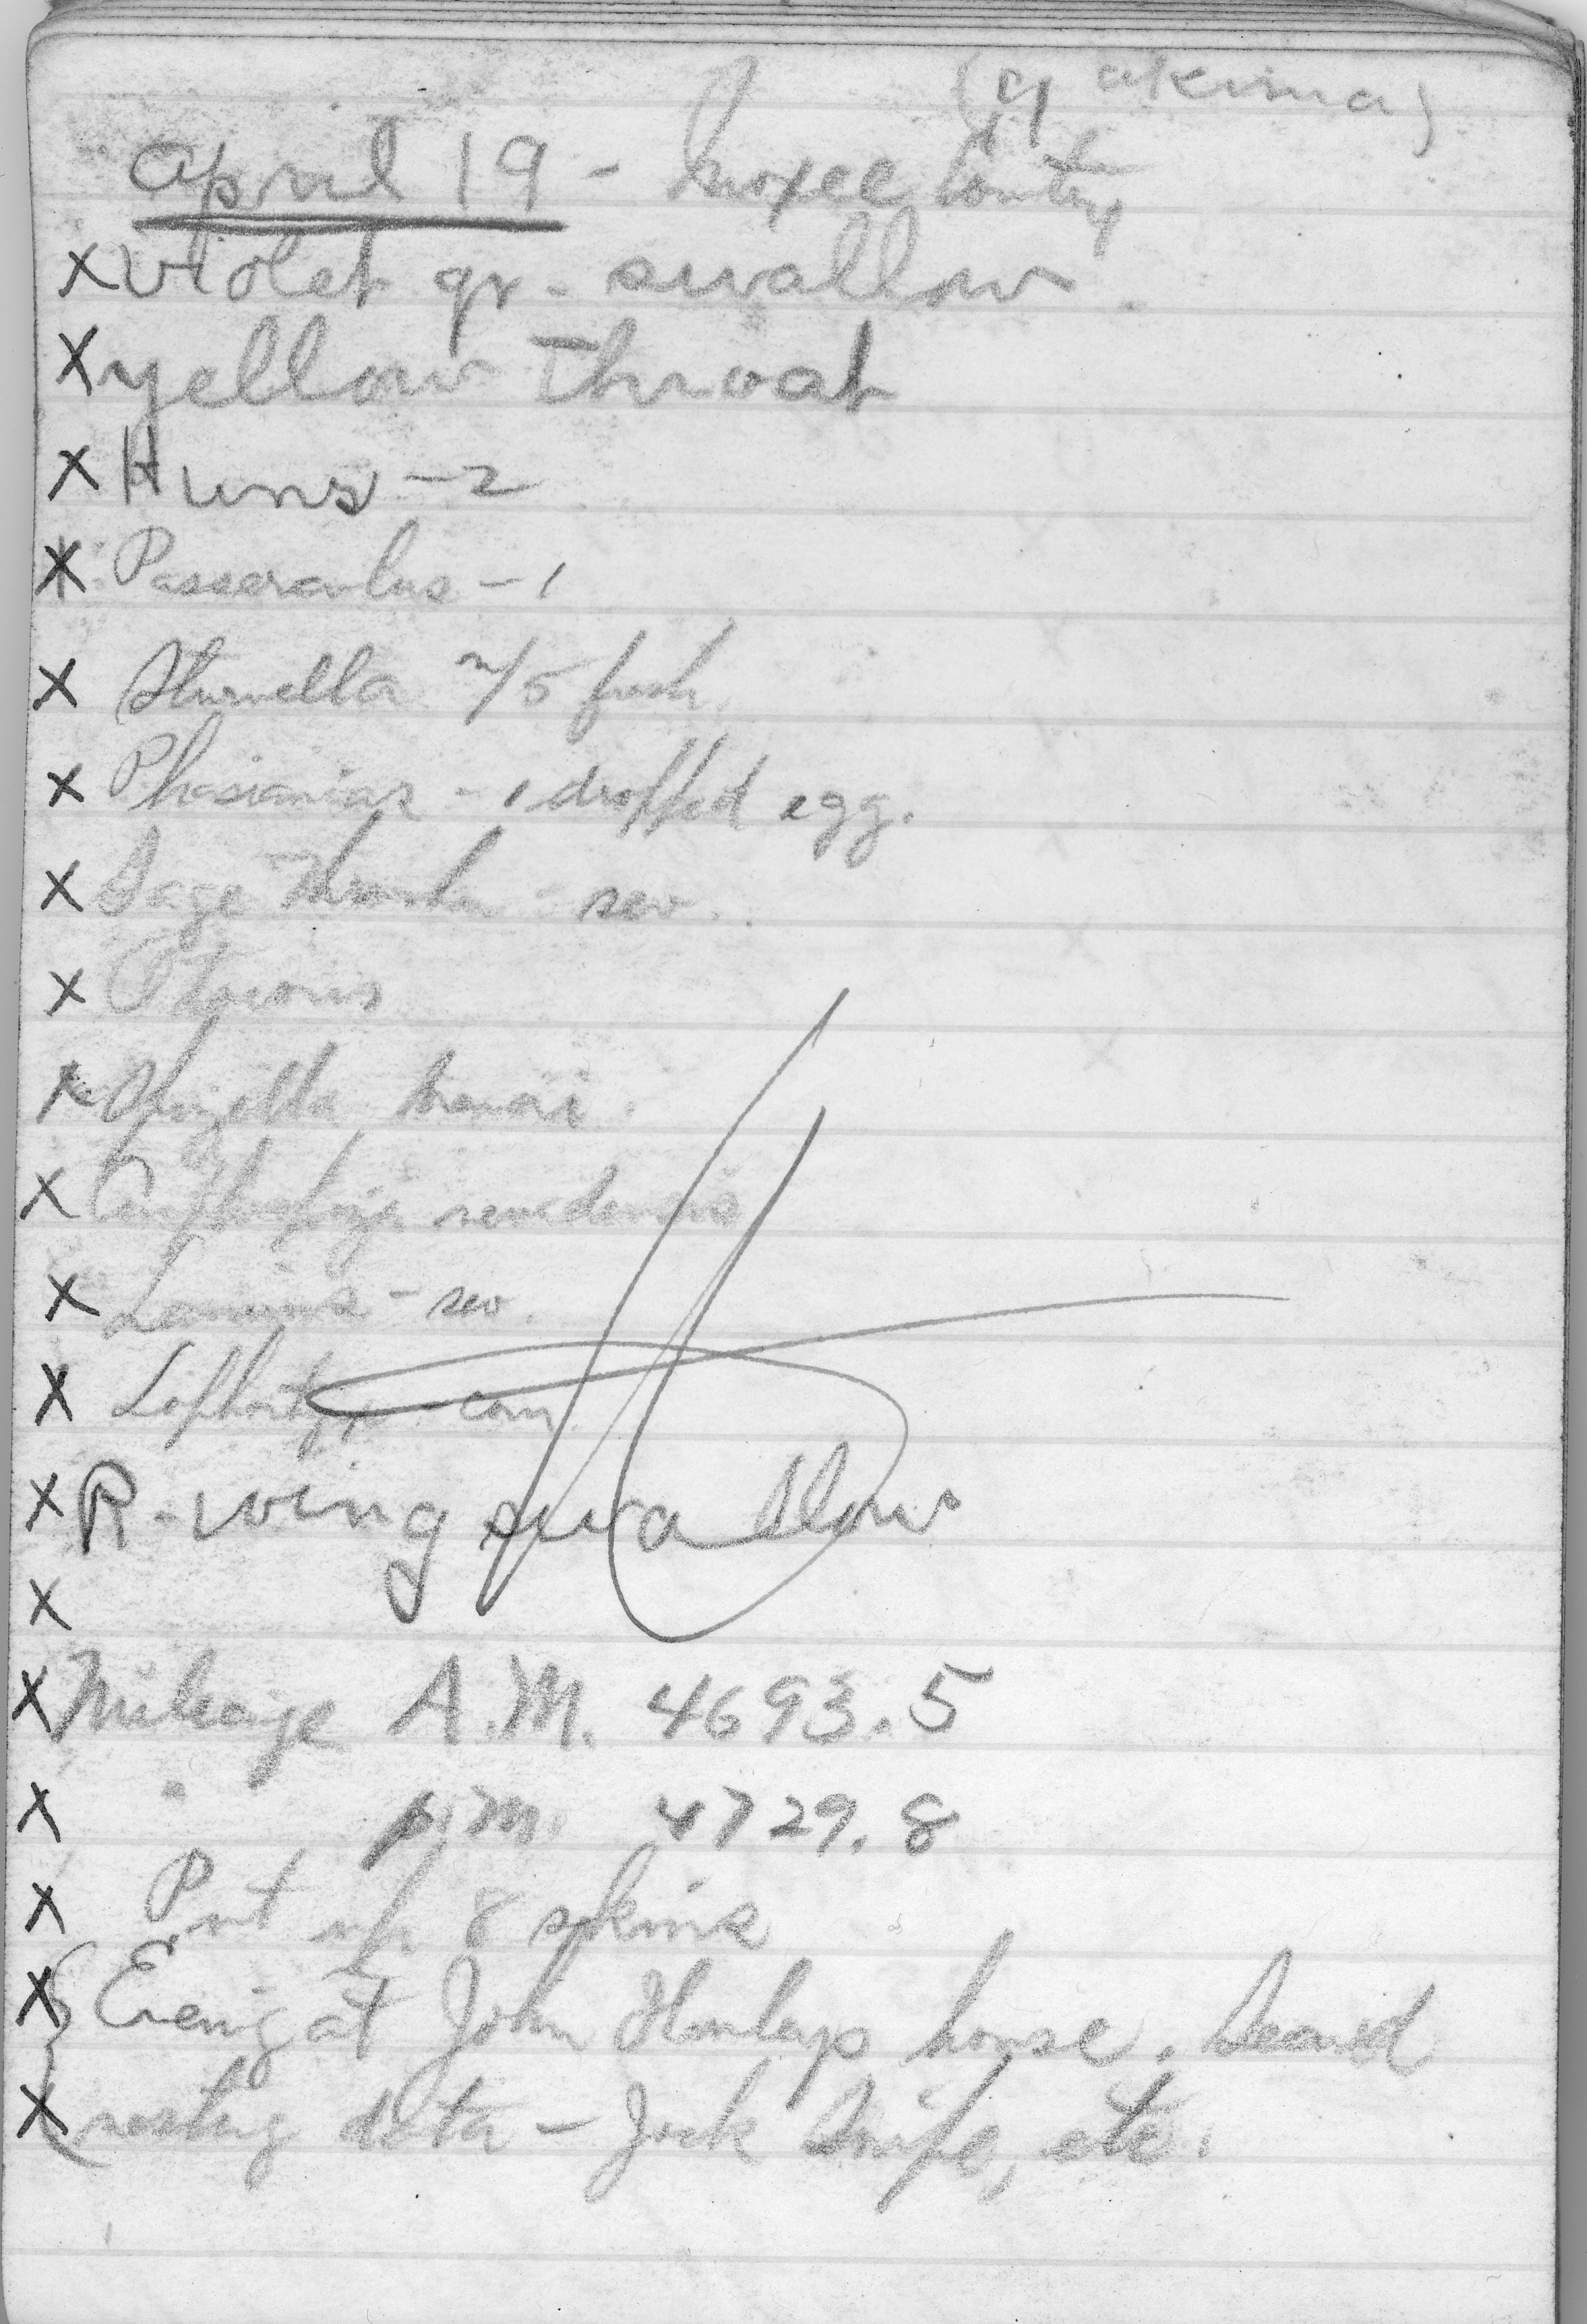 (Yakima)
April 19 - Moxee Country
X Violet gr. swallow
X Yellow Throat
X Huns - 2
X Passerculus - 1
X Sturnella n/5 fresh
X Phasianus - 1 dropped egg.
X Sage Thrasher - sev.
X Otocoris
X Spizella breweri.
X Amphispiza nevadensis
X Lanius - sev.
X Lophortyx com.
X R-wing swallow
X
X Mileage A.M. 4693.5
X " p.m. 4729.8
X Put up 8 skins
X Evening at John house.
X nesting data - Jack Snipe, etc.